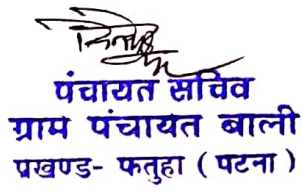 पंचायत सचिव
ग्राम पंचायत बाली
प्रखण्ड- फतुहा ( पटना )